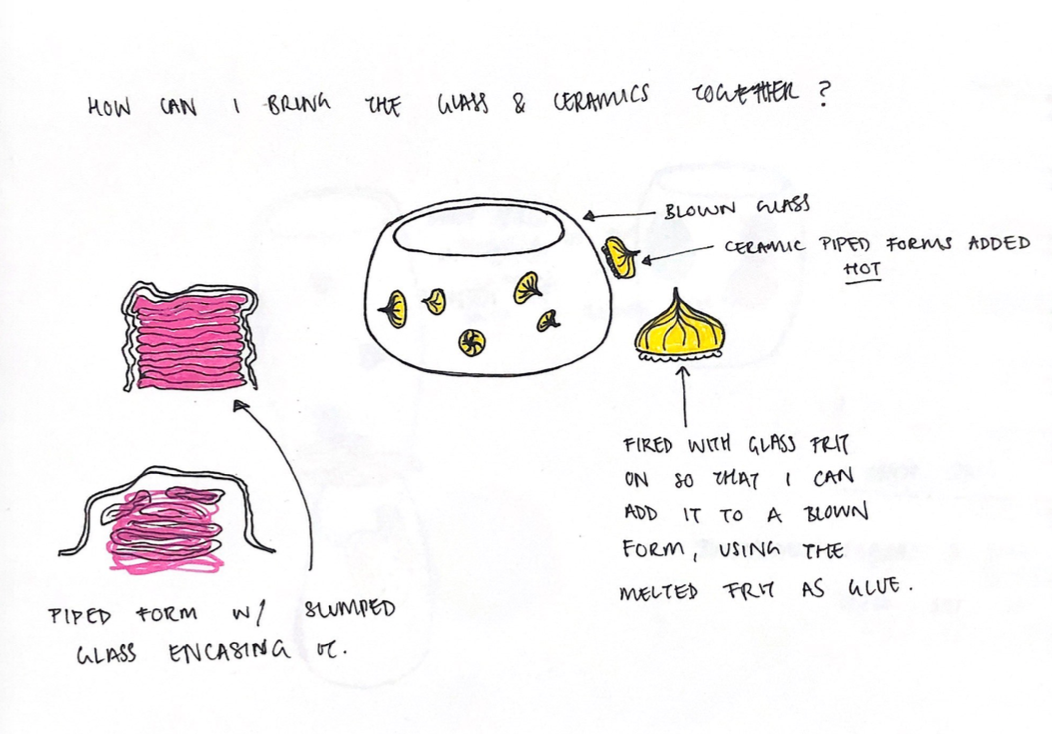 HOW CAN I BRING THE GLASS & CERAMICS TOGETHER ?
BLOWN GLASS
CERAMIC PIPED FORMS ADDED
HOT
FIRED WITH GLASS FRIT
ON SO THAT I CAN
ADD IT TO A BLOWN
FORM, USING THE
MELTED FRIT AS GLUE.
PIPED FORM W/ SLUMPED
GLASS ENCASING IT.